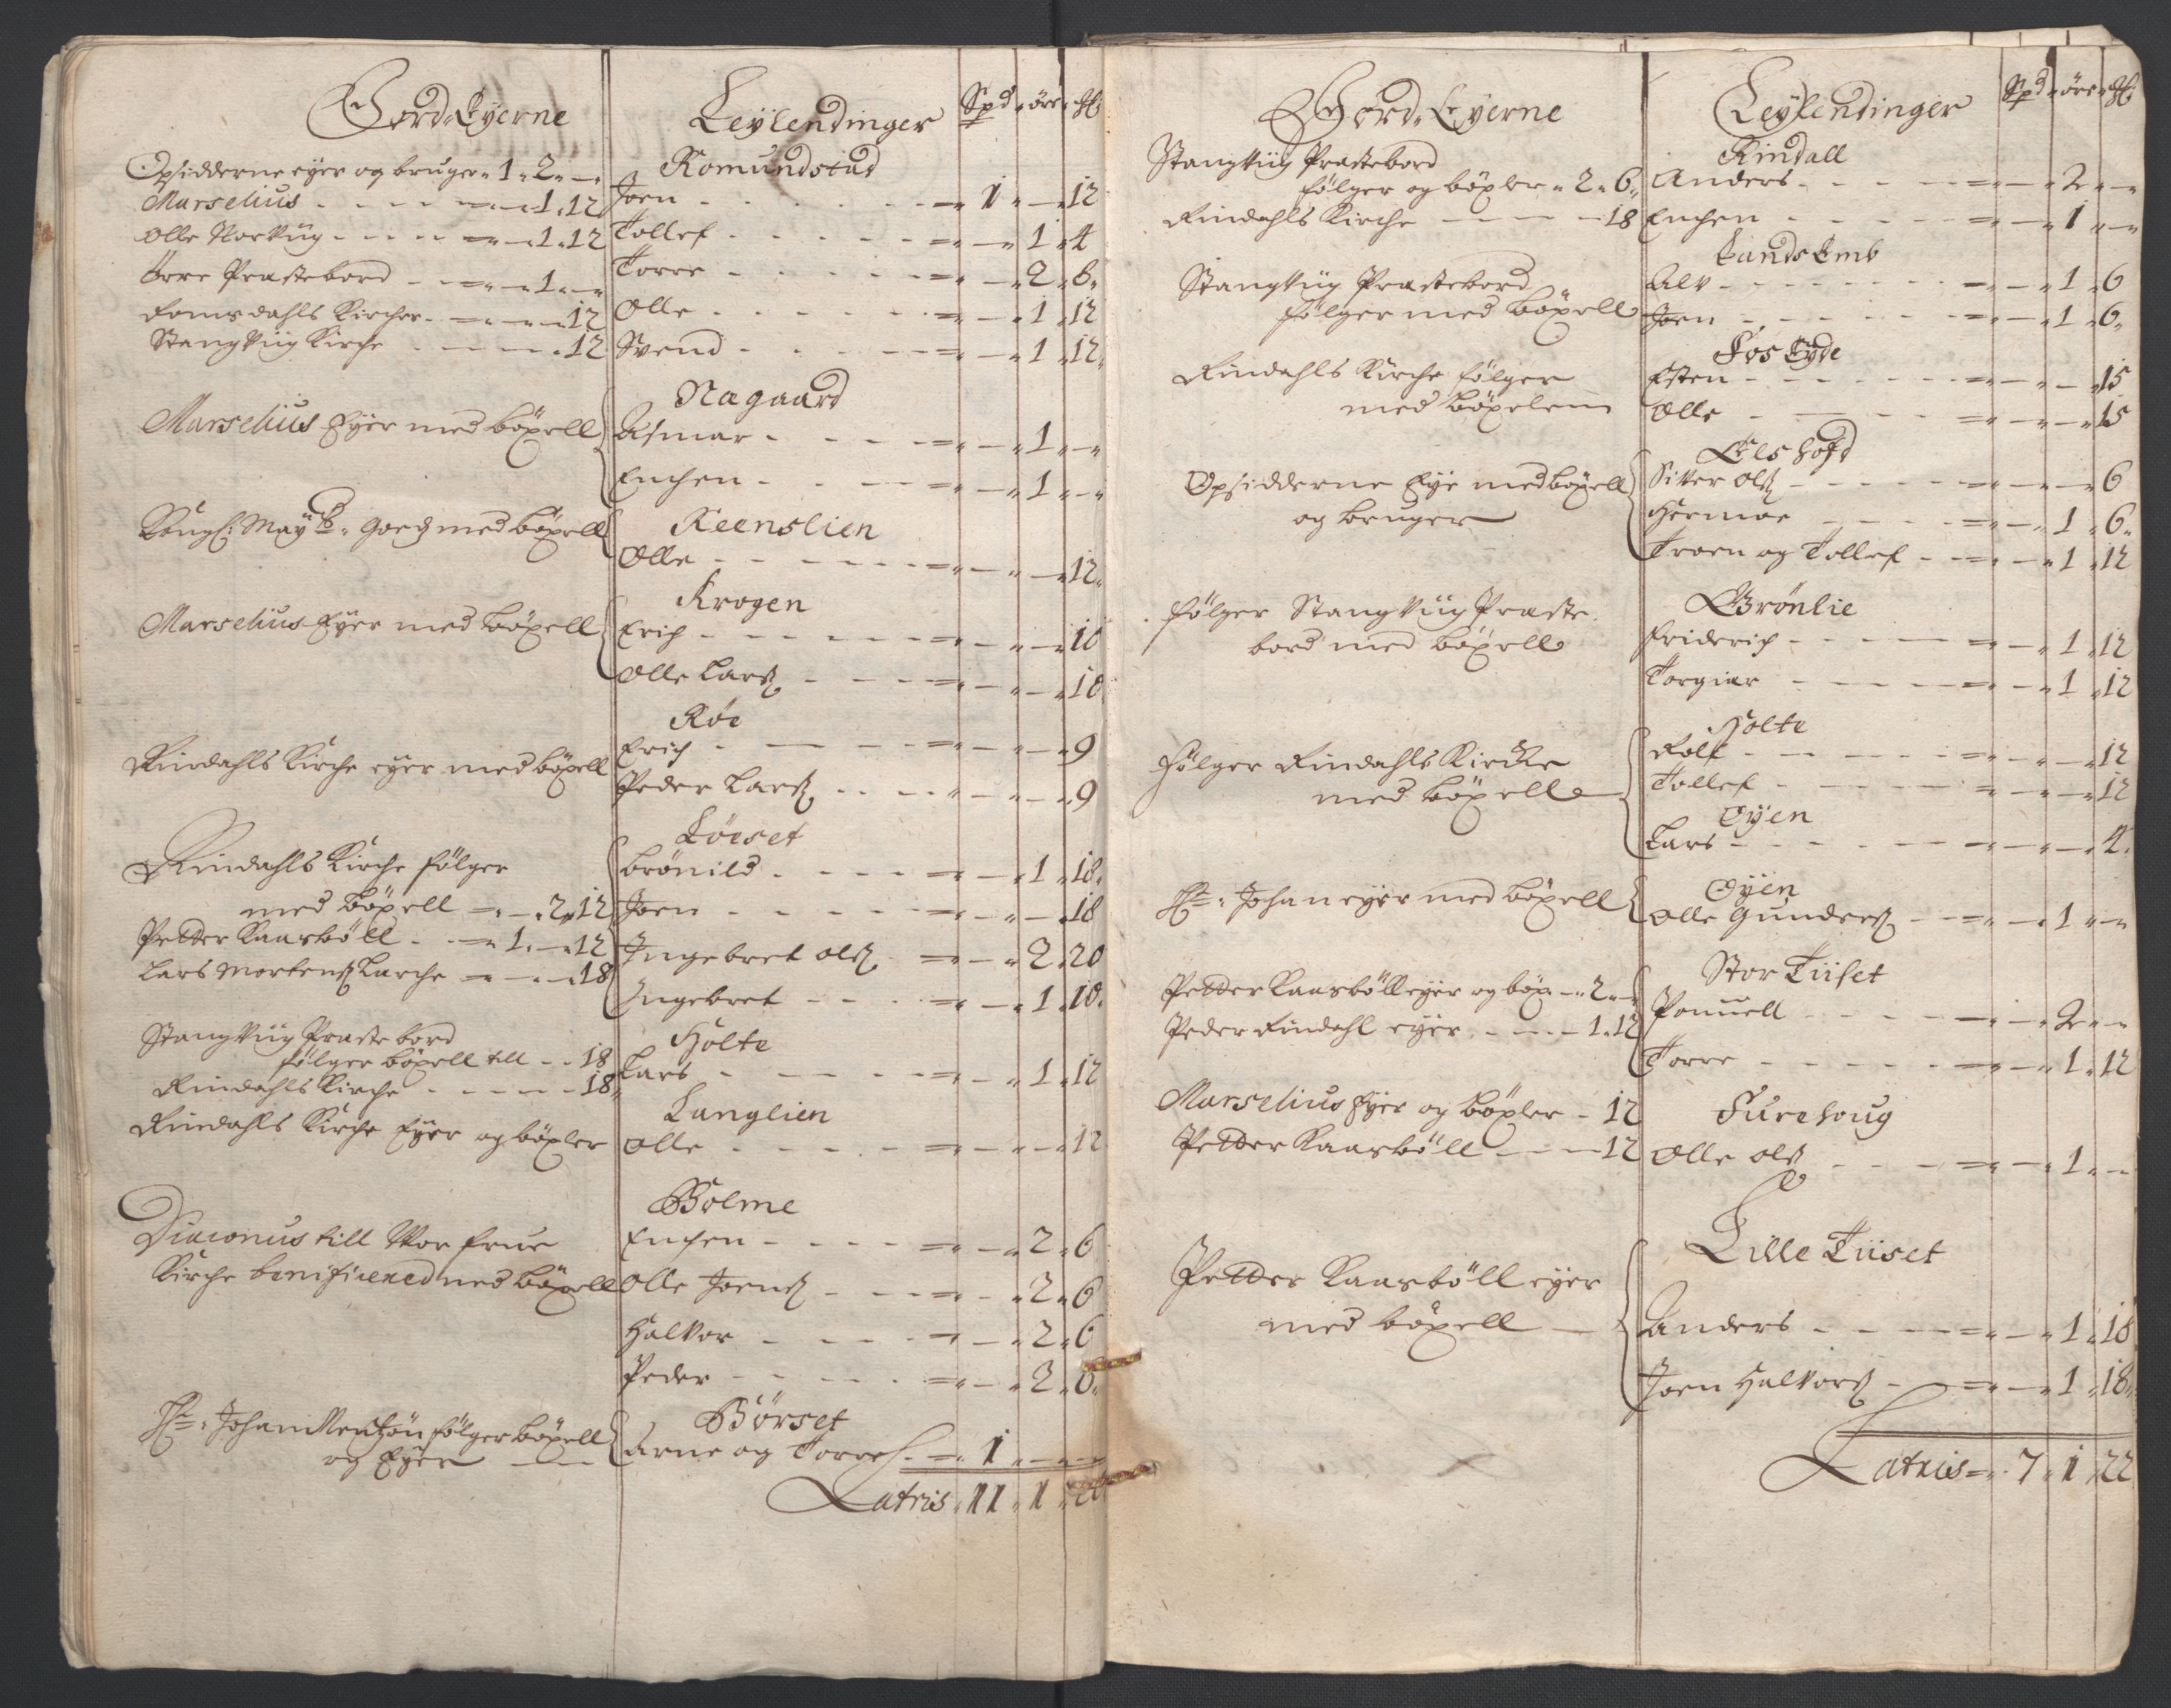 Jord Eyerne
Opsidderne eyer og bruger 1 „ 2 „ —
Marselius - - - - 1 „ 12
Olle Norvüg - - - - 1 „ 12
Torre Præstebord - - 1 „ —
Romsdahls Kircher - - 12
Stangvüg Kirche - - - 12
Marselius Eyer med böxell
Kongl: May: Goeds med böxell
Marselius Eyer med böxell
Rindahls Kirche eyer med böxell
Rindahls Kirche følger
med böxell - 2 „ 12
Petter Kaasböll - 1 „ — „ 12
Lars Mortens Larche - - 18
Stangvüg Præste bord
følger böxell till - - 18
Rindahls Kirche - - - - 18
Rindahls Kirche Eyer og böxler
Diaconus till Vor frue
Kirche benificered med böxell
Hr: Johan følger böxell
og Eyer
Leylendinger Spd „ öre „ Mk
Romundstad
Joen - - - 1 „ — „ 12
Tollef - - - — „ 1 „ 4
Torre - - - — „ 2 „ 8
Olle - - - — „ 1 „ 12
Svend - - - — „ 1 „ 12
Nagaard
Asmar - - - — „ 1 „ —
Enchen - - - — „ 1 „ —
Reenslien
Olle - - - — „ — „ 12
Krogen
Erich - - - — „ — „ 18
Olle Lars - - - — „ — „ 18
Røe
Erich - - - — „ — „ 9
Peder Lars - - - — „ — „ 9
Löeset
Brönild - - - — „ 1 „ 18
Joen - - - — „ — „ 18
Ingebret Ols - — „ 2 „ 20
Ingebret - - - — „ 1 „ 18
Holte
Lars - - - — „ 1 „ 12
Langlien
Olle - - - — „ — „ 12
Bolme
Enchen - - - — „ 2 „ 6
Olle Joens - - - — „ 2 „ 6
Halvor - - - — „ 2 „ 6
Peder - - - — „ 2 „ 6
Börset
Arne og Torre - 1 „ — „ —
Latris „ 11 „ 1 „
Jord Eyerne
Stangvüg Præstebord
følger og böxler „ 2 „ 6
Rindahls Kirche - - - 18
Stangvüg Præstebord
følger med böxell
Rindahls Kirche følger
med böxelen
Opsidderne Eye med böxell
og bruger
følger Stangvüg Præste
bord med böxell
Følger Rindahls Kircke
med böxell
Hr: Johan eyer med böxell
Petter Kaasböll eyer og böx: - 2 „ —
Peder Rindahl eyer - - - 1 „ 12
Marselius Eyer og böxler - 12
Petter Kaasböll - - 12
Petter Kaasböll eyer
med böxell
Leylendinger Spd „ öre „ Mk
Rindall
Anders - - - — „ 2 „ —
Enchen - - - — „ 1 „ —
Landsemb
Alv - - - — „ 1 „ 6
Joen - - - — „ 1 „ 6
Fos Eyde
Esten - - - — „ — „ 15
Olle - - - — „ — „ 15
Elshofd
Sivver Ols - - - — „ — „ 6
Hermoe - - - — „ 1 „ 6
Troen og Tollef - - — „ 1 „ 12
Grönlie
Friderich - - - — „ 1 „ 12
Torgier - - - — „ 1 „ 12
Holte
Rolf - - - — „ — „ 12
Tollef - - - — „ — „ 12
Øyen
Lars - - - — „ — „ 4
Øyen
Olle Gunders - - — „ 1 „ —
Stor Tiiset
Ponuell - - - — „ 2 „ —
Torre - - - — „ 1 „ 12
Furehoug
Olle Ols - - - — „ 1 „ —
Lille Tiiset
Anders - - - — „ 1 „ 18
Joen Halvors - - — „ 1 „ 18
Latris - 7 „ 1 „ 22